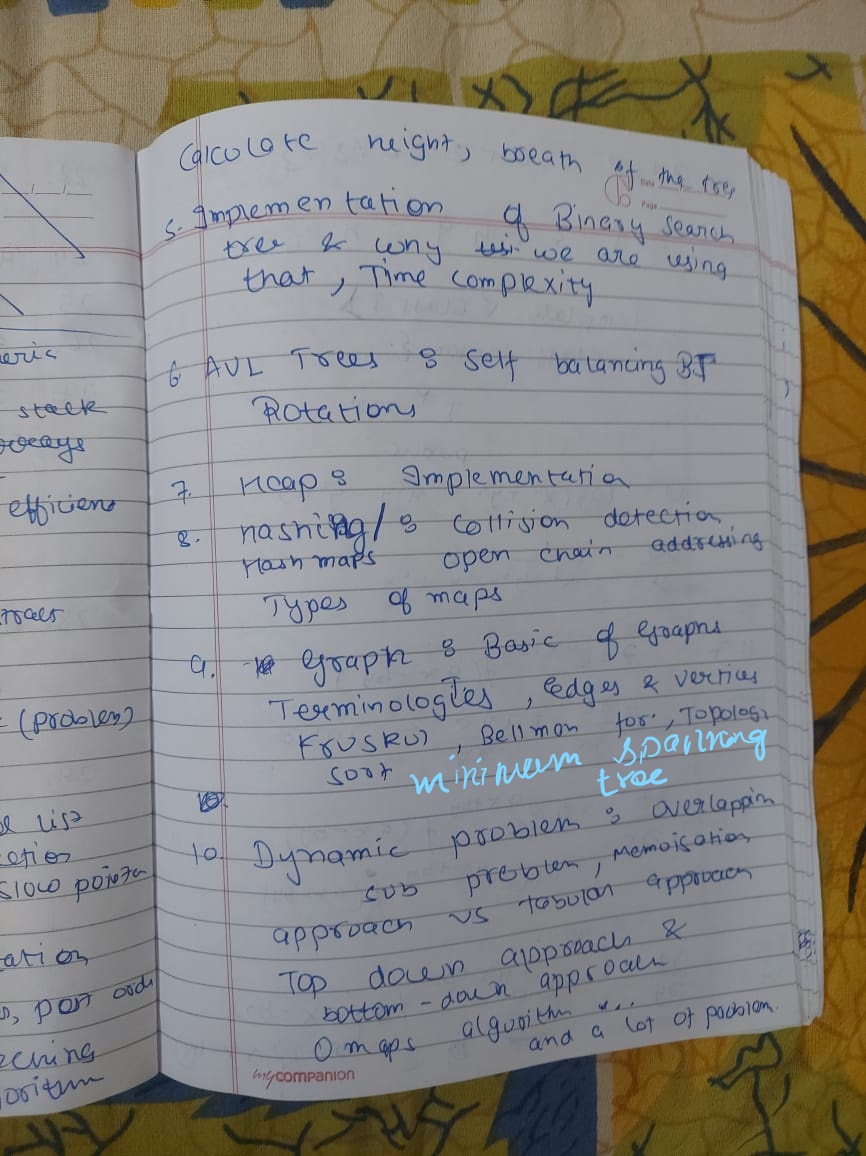 eric
stack
efficien
(problem)
list
slow pointer
ation
Calculate height, bseath of the tree
5. Implementation of Binary search
tree & why we are using
that, Time complexity
6 AVL Trees : Self balancing BT
Rotations
7. Heap : Implementation
8. hashing/ : Collision detection
Hash maps open chain addressing
Types of maps
9. Graph : Basic of Graphs
Terminologies, Edges & vertices
Bellman for, Topologi
sort minimum spainning
tree
10 Dynamic problem : overlappin
sub problem, Memoisation
approach vs tabular approach
Top down approach &
bottom-down approach
algorithm ...
and a lot of problem.
mycompanion